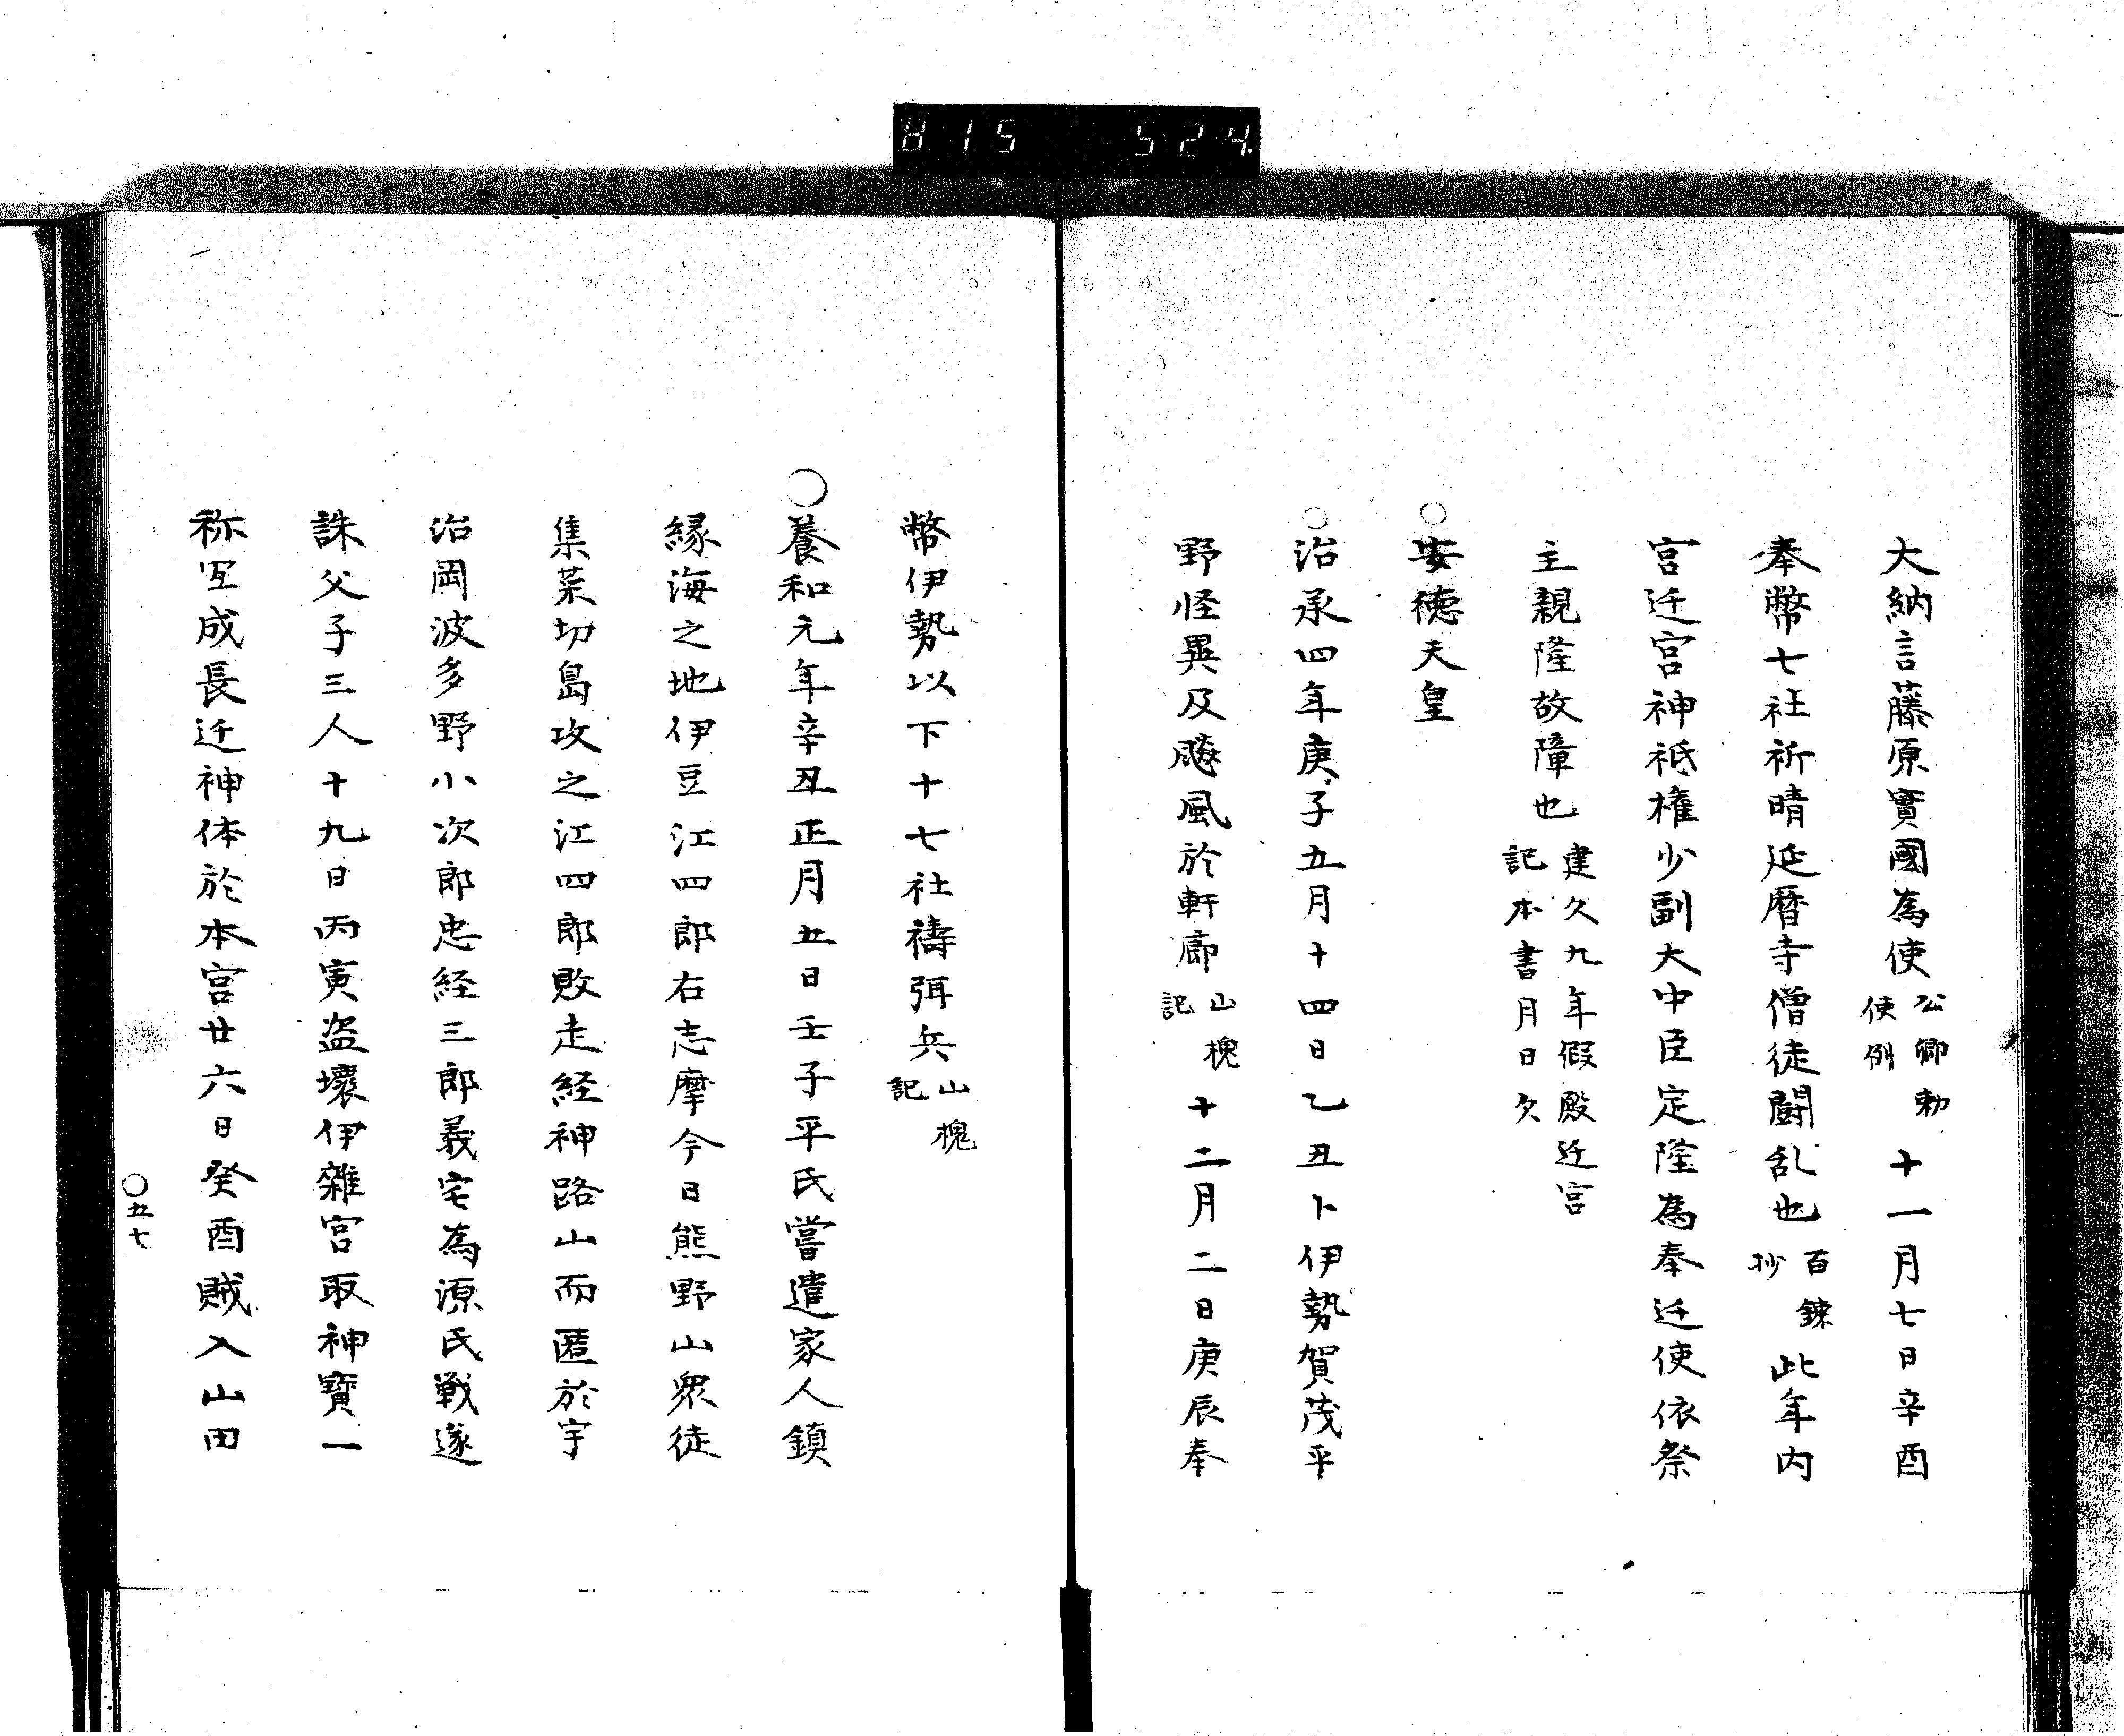 815 524
大納言藤原實國為使公卿勅使例十一月七日辛酉
奉幣七社祈晴延暦寺僧徒闘乱也百鍊抄此年内
宮迁宮神祇権少副大中臣定隆為奉迁使依祭
主親隆故障也建久九年假殿迁宮記本書月日欠
○安徳天皇
○治承四年庚子五月十四日乙丑卜伊勢賀茂平
野怪異及飈風於軒廊山槐記十二月二日庚辰奉
幣伊勢以下十七社禱弭兵山槐記
○養和元年辛丑正月五日壬子平氏嘗遣家人鎮
縁海之地伊豆江四郎右志摩今日熊野山衆徒
集菜切島攻之江四郎敗走経神路山而匿於宇
治岡波多野小次郎忠経三郎義宅為源氏戦遂
誅父子三人十九日丙寅盗壞伊雜宮取神寶一
祢宜成長迁神体於本宮廿六日癸酉賊入山田
○五七